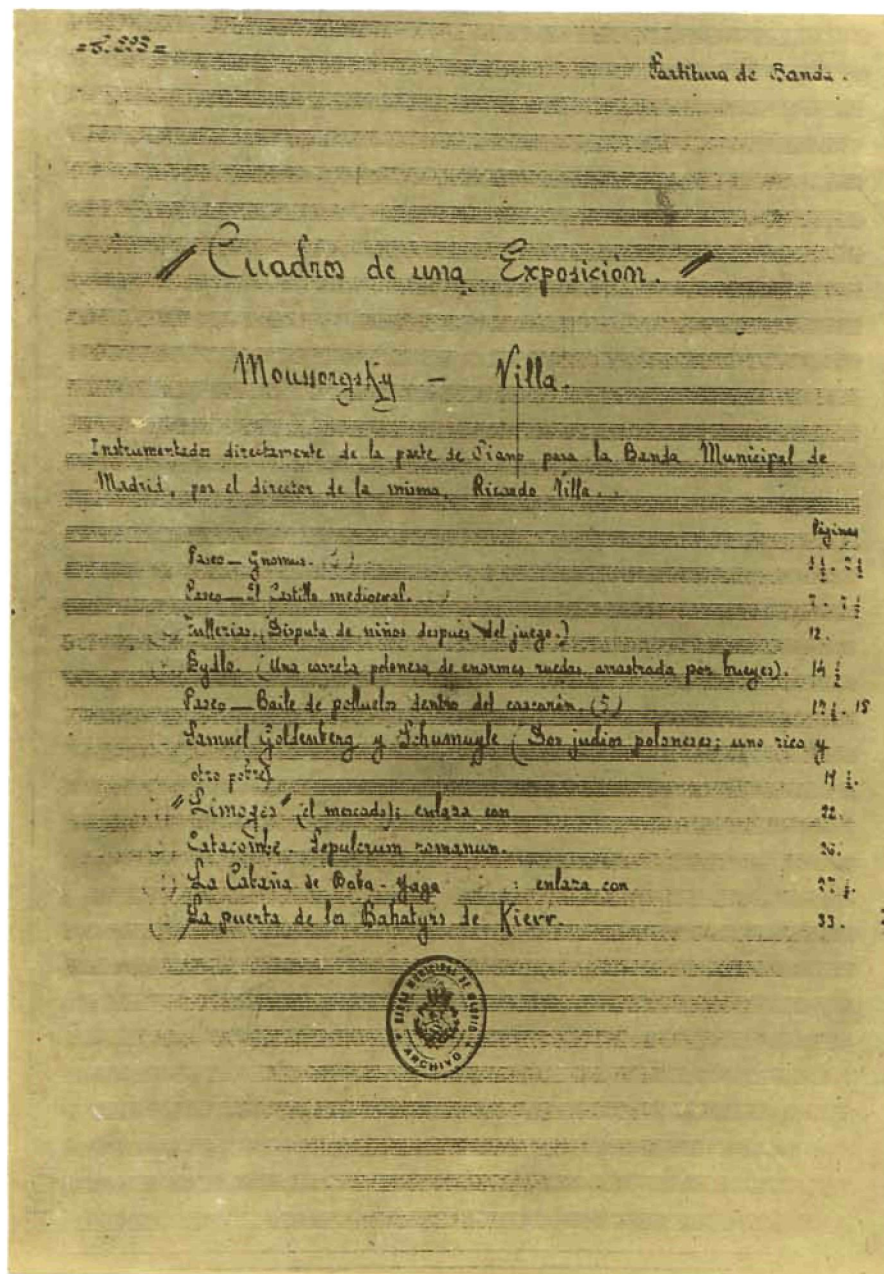 Partitura de Banda.
" Cuadros de una Exposición. "
Moussorgsky - Villa.
Instrumentados directamente de la parte de Piano para la Banda Municipal de
Madrid, por el director de la misma, Ricardo Villa.
Páginas
Paseo - Gnomus.
Paseo - El Castillo medioeval. 7 -
Tullerias. (Disputa de niños después del juego.) 12.
Bydlo. (Una carreta polonesa de enormes ruedas arrastrada por bueyes). 14 ½
Paseo - Baile de polluelos dentro del cascarón. (5) 18
Samuel Goldenberg y Schumuyle (Dos judios poloneses; uno rico y
otro pobre) 19 ½.
"Limoges" (el mercado); enlaza con 22.
Catacombe. Sepulcrum romanum. 26.
La Cabaña de Baba-Yaga : enlaza con 27 ½.
La puerta de los Bohatyrs de Kiew. 33.
BANDA MUNICIPAL DE MADRID
ARCHIVO